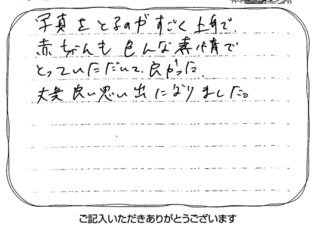 写真をとるのがすごく上手で、
赤ちゃんも色んな表情で
とっていただいて、良かった。
大変良い思い出になりました。
ご記入いただきありがとうございます